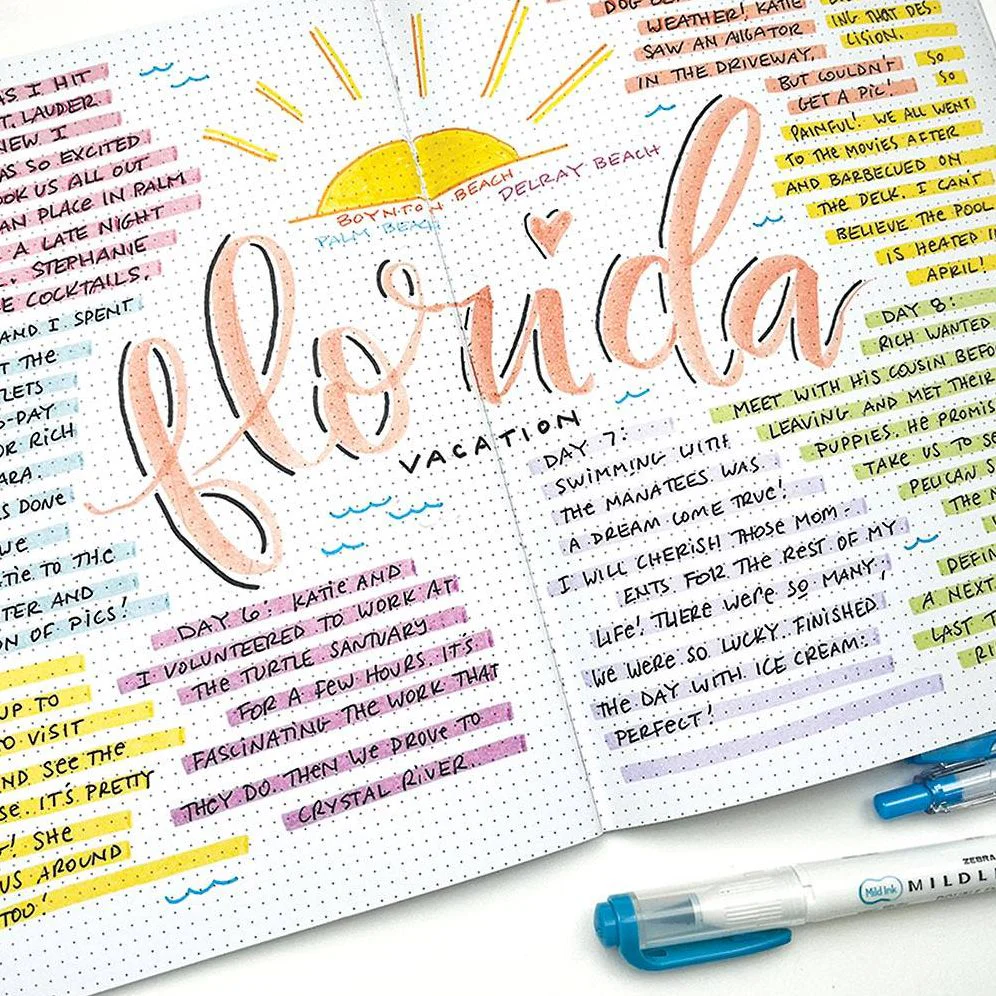 AS I HIT
T. LAUDER
NEW I
AS SO EXCITED
OOK US ALL OUT
AN PLACE IN PALM
A LATE NIGHT
STEPHANIE
E COCKTAILS.
AND I SPENT
T THE
LETS
D-PAY
OR RICH
ARA.
S DONE
WE
ATIE TO THE
TER AND
ON OF PICS!
UP TO
TO VISIT
ND SEE THE
SE. IT'S PRETTY
! SHE
US AROUND
TOO!
BOYNTON BEACH
DELRAY BEACH
PALM BEACH
florida
VACATION
DAY 6: KATIE AND
I VOLUNTEERED TO WORK AT
THE TURTLE SANTUARY
FOR A FEW HOURS. IT'S
FASCINATING THE WORK THAT
THEY DO. THEN WE PROVE TO
CRYSTAL RIVER.
WEATHER! KATIE
SAW AN AlIGATOR
IN THE DRIVEWAY,
BUT COULDN'T
GET A PIC!
ING THAT DES
LISION.
SO
SO
PAINFUL! WE ALL WENT
TO THE MOVIES AFTER
AND BARBECUED ON
THE DECK. I CAN'T
BELIEVE THE POOL
IS HEATED I
APRIL!
DAY 7:
SWIMMING WITH
THE MANATEES WAS
A DREAM COME TRUE!
I WILL CHERISH THOSE MOM-
ENTS FOR THE REST OF MY
LIFE! THERE WERE SO MANY,
WE WERE SO LUCKY. FINISHED
THE DAY WITH ICE CREAM:
PERFECT!
DAY 8:
RICH WANTED
MEET WITH HIS COUSIN BEFO
LEAVING AND MET THEIR
PUPPIES. HE PROMIS
TAKE US TO SE
PELICAN S
THE N
DEFIN
A NEXT
LAST T
RI
ZEBRA
Mild Ink
MILDLI